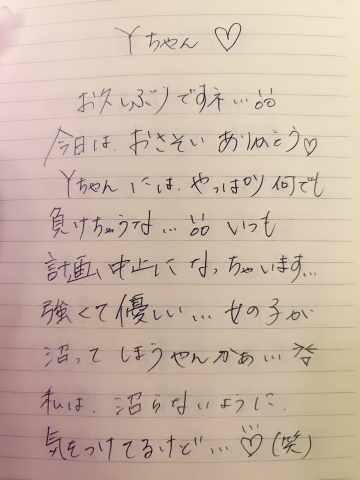 Yちゃん ♡
お久しぶりですネ...
今日は、おさそい ありがとう♡
Yちゃん には、やっぱり何でも
負けちゃうな... いつも
計画、中止に なっちゃいます...
強くて優しい... 女の子が
沼って しまうやんかぁ...
私は、沼らないように、
気をつけてるけど...♡(笑)